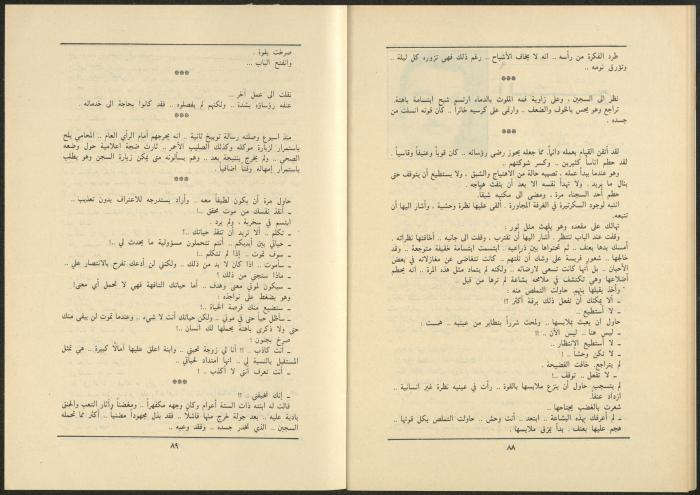 طرد الفكرة من رأسه .. انه لا يخاف الأشباح .. رغم ذلك فهي تزوره كل ليلة ..
وتؤرق نومه ..
***
نظر الى السجين ، وعلى زاوية فمه الملوث بالدماء ارتسم شبح ابتسامة باهتة .
تراجع وهو يحس بالخوف والضعف .. وارتمى على كرسيه خائراً .. كأن قوته انسلت من
جسده .
***
لقد أتقن القيام بعمله دائماً. مما جعله يحوز رضى رؤسائه .. كان قوياً وعنيفاً وقاسياً .
لقد حطم اناساً كثيرين .. وكسر شوكتهم ..
وهو عندما يبدأ عمله ، تصيبه حالة من الاهتياج والشبق . ولا يستطيع أن يتوقف حتى
ينال ما يريد . ولا تهدأ نفسه الا بعد أن ينفث هياجه .
حطم أحد السجناء مرة ، ومضى الى مكتبه شبقاً .
انتبه لوجود السكرتيرة في الغرفة المجاورة . ألقى عليها نظرة وحشية ، وأشار اليها أن
تتبعه.
تهالك على مقعده وهو يلهث مثل ثور :
وقفت عند الباب تنتظر . أشار اليها أن تقترب ، وقفت الى جانبه .. أخافتها نظراته .
أمسك يدها بعنف .. ثم احتواها بين ذراعيه . ابتسمت ابتسامة خفيفة متوجعة .. وقد
خالجها .. شعور فريسة على وشك أن تلتهم .. كانت تتغاضى عن مغازلاته في بعض
الأحيان .. بل أنها كانت تسعى لارضائه .. ولكنه لم يتماد مثل هذه المرة .. انه يحطم
أضلاعها وهي تكتشف في ملامحه بشاعة لم ترها من قبل ..
وأخذ يقبلها بنهم. حاولت التملص منه :
ـ ألا يمكنك أن تفعل ذلك برقة أكثر ؟!!
ـ لا أستطيع ..
حاول ان يعبث بملابسها .. ولمحت شرراً يتطاير من عينيه .. همست :
ـ ليس هنا .. ليس الآن .. !!
ـ لا أستطيع الانتظار ..
ـ لا تكن وحشاً .. !
لم يتراجع. خافت الفضيحة .
ـ لا تفعل .. توقف ..!
لم يستجب. حاول أن ينزع ملابسها بالقوة .. رأت في عينيه نظرة غير انسانية ..
ازداد عنفاً.
شعرت بالغضب يجتاحها ..
ـ لم أعرفك بهذه البشاعة . ابتعد .. أنت وحش .. حاولت التملص بكل قوتها ..
هجم عليها بعنف . بدأ يمزق ملابسها .
٨٨
صرخت بقوة .
وانفتح الباب ...
***
نقلت الى عمل آخر ...
عنفه رؤساؤه بشدة .. ولكنهم لم يفصلوه .. فقد كانوا بحاجة الى خدماته .
***
منذ اسبوع وصلته رسالة توبيخ ثانية .. انه يحرجهم أمام الرأي العام .. المحامي يلح
باستمرار لزيارة موكله وكذلك الصليب الأحمر .. ثارت ضجة اعلامية حول وضعه
الصحي .. ولم يخرج بنتيجة بعد .. وهم يسألونه متى يمكن زيارة السجن وهو يطلب
باستمرار إمهاله وقتاً اضافياً .
***
حاول مرة أن يكون لطيفاً معه .. وأراد يستدرجه للأعتراف بدون تعذيب ..
ـ أنقذ نفسك من موت محقق ..!
ابتسم في سخرية، ولم يرد .
ـ تكلم .. ألا تريد أن تنقذ حياتك ..!
ـ حياتي بين أيديكم .. أنتم تتحملون مسؤولية ما يحدث لي ..!
ـ سوف تموت .. إذا لم تتكلم ..!!
ـ سأموت .. اذا كان لا بد من ذلك .. ولكنني لن أدعك تفرح بالانتصار علي ..
ـ ماذا ستجني من ذلك !
ـ سيكون لموتي معنى وهدف .. أما حياتك التافهة فهي لا تحمل أي معنى!
وهو يضغط على نواجذه :
ـ ستضيع منك فرصة الحياة ..!
ـ سأظل حياً حتى في موتي .. ولكن حياتك أنت لا شيء .. وعندما تموت لن يبقى منك
حتى ولا ذكرى باهتة يحملها لك انسان ..!
صرخ بجنون :
ـ أنت كاذب .. !! أنا لي زوجة تحبني .. وابنة اعلق عليها آمالاً كبيرة .. هي تمثل
المستقبل بالنسبة لي .. انها امتداد لحياتي ..
ـ أنت تعرف أنني لا أكذب ..!
***
ـ إنك تخيفني .. !!
قالت له ابنته ذات الستة أعوام وكان وجهه مكفهراً .. ومغضناً وآثار التعب والحنق
بادية عليه .. بعد جولة خرج منها فاشلاً .. فقد بذل مجهوداً مضنياً .. أكثر مما تحمله
السجين .. الذي تخدر جسده .. وفقد وعيه ..
٨٩